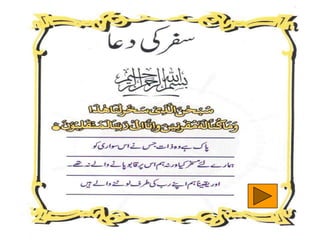 سفر کی دعا
بسم اللہ الرحمن الرحیم
سُبْحٰنَ الَّذِیْ سَخَّرَ لَنَا هٰذَا
وَمَا كُنَّا لَهٗ مُقْرِنِیْنَ وَاِنَّاۤ اِلٰی رَبِّنَا لَمُنْقَلِبُوْنَ
پاک ہے وہ ذات جس نے اس سواری کو
ہمارے لئے مسخر کیا ورنہ ہم اس پر قابو پانے والے نہ تھے۔
اور یقیناً ہم اپنے رب کی طرف لوٹنے والے ہیں